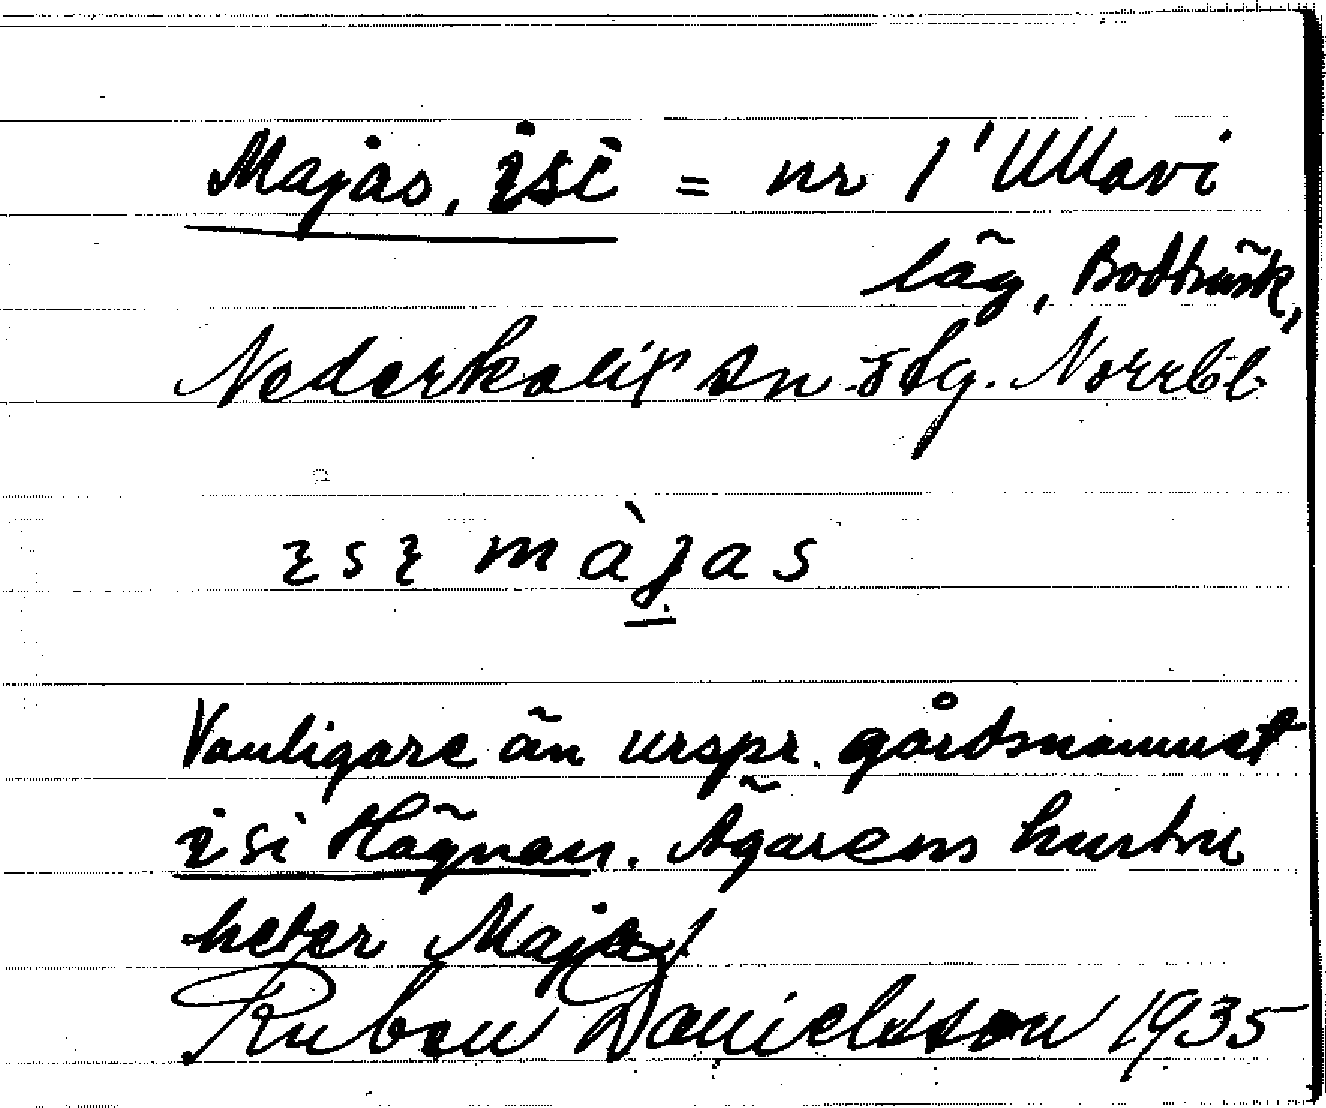 Majas, isi = nr 1 Ullavi
läg, Bodträsk,
Nederkalix sn o tg. Norrbl
ɩsɩ màjas
Vanligare än urspr. gårdsnamnet
isi Hägnan. Ägarens hustru
heter Maja/
Ruben Danielsson 1935